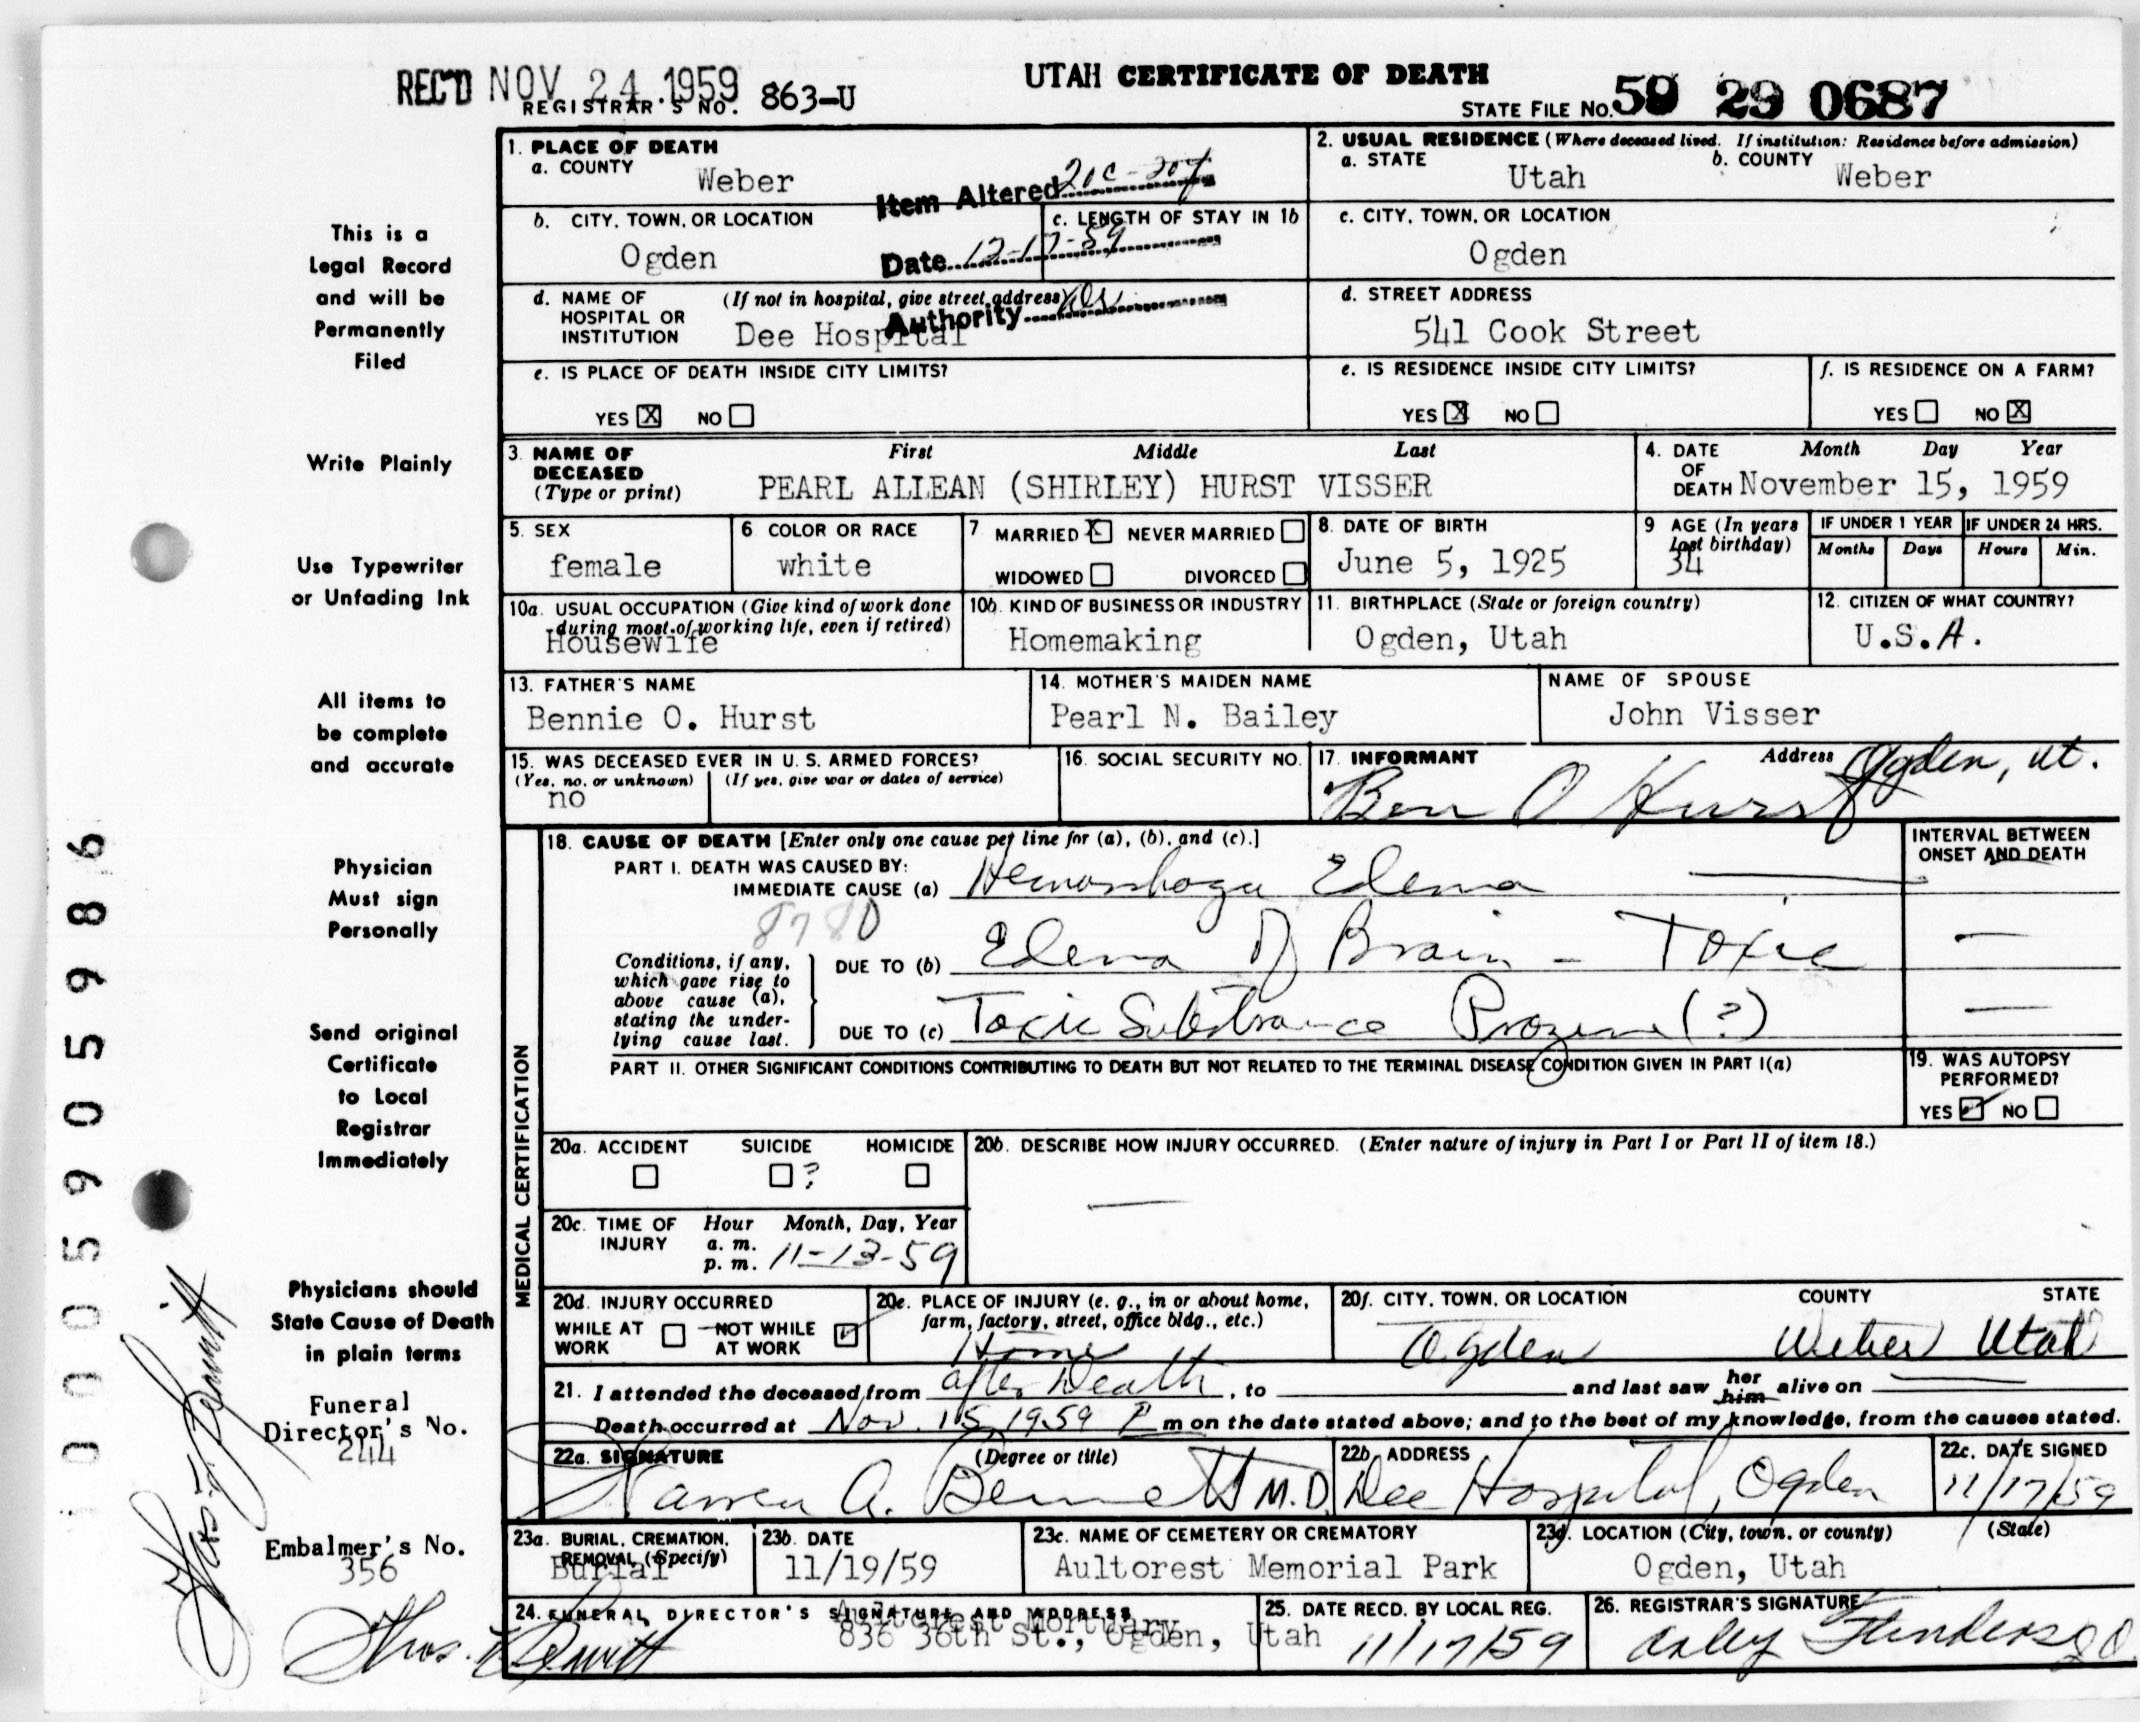 REC'D NOV 24 1959
REGISTRAR'S NO. 863-U
UTAH CERTIFICATE OF DEATH
STATE FILE NO. 59 29 0687
This is a
Legal Record
and will be
Permanently
Filed
Write Plainly
Use Typewriter
or Unfading Ink
All items to
be complete
and accurate
Physician
Must sign
Personally
Send original
Certificate
to Local
Registrar
Immediately
Physicians should
State Cause of Death
in plain terms
Funeral
Director's No.
244
Embalmer's No.
356
1000590590986
1. PLACE OF DEATH
a. COUNTY
Weber
Item Altered 20c-20f
Date 12-17-59
Authority
2. USUAL RESIDENCE (Where deceased lived. If institution: Residence before admission)
a. STATE Utah b. COUNTY Weber
b. CITY, TOWN, OR LOCATION
Ogden
c. LENGTH OF STAY IN 1b
c. CITY, TOWN, OR LOCATION
Ogden
d. NAME OF HOSPITAL OR INSTITUTION (If not in hospital, give street address)
Dee Hospital
d. STREET ADDRESS
541 Cook Street
e. IS PLACE OF DEATH INSIDE CITY LIMITS?
YES X NO
e. IS RESIDENCE INSIDE CITY LIMITS?
YES X NO
f. IS RESIDENCE ON A FARM?
YES NO X
3. NAME OF DECEASED (Type or print)
First Middle Last
PEARL ALLEAN (SHIRLEY) HURST VISSER
4. DATE OF DEATH Month Day Year
November 15, 1959
5. SEX
female
6 COLOR OR RACE
white
7 MARRIED X NEVER MARRIED
WIDOWED DIVORCED
8. DATE OF BIRTH
June 5, 1925
9 AGE (In years last birthday)
34
IF UNDER 1 YEAR IF UNDER 24 HRS.
Months Days Hours Min.
10a. USUAL OCCUPATION (Give kind of work done during most of working life, even if retired)
Housewife
10b. KIND OF BUSINESS OR INDUSTRY
Homemaking
11. BIRTHPLACE (State or foreign country)
Ogden, Utah
12. CITIZEN OF WHAT COUNTRY?
U.S.A.
13. FATHER'S NAME
Bennie O. Hurst
14. MOTHER'S MAIDEN NAME
Pearl N. Bailey
NAME OF SPOUSE
John Visser
15. WAS DECEASED EVER IN U. S. ARMED FORCES?
(Yes, no, or unknown) (If yes, give war or dates of service)
no
16. SOCIAL SECURITY NO.
17. INFORMANT Address
Ben O Hurst Ogden, Ut.
MEDICAL CERTIFICATION
18. CAUSE OF DEATH [Enter only one cause per line for (a), (b), and (c).]
INTERVAL BETWEEN ONSET AND DEATH
PART I. DEATH WAS CAUSED BY:
IMMEDIATE CAUSE (a) Edema
Conditions, if any, which gave rise to above cause (a), stating the underlying cause last.
DUE TO (b) Edema of Brain - Toxic —
DUE TO (c) Toxic Substance (?) —
PART II. OTHER SIGNIFICANT CONDITIONS CONTRIBUTING TO DEATH BUT NOT RELATED TO THE TERMINAL DISEASE CONDITION GIVEN IN PART I(a)
19. WAS AUTOPSY PERFORMED?
YES ✓ NO
20a. ACCIDENT SUICIDE HOMICIDE
?
20b. DESCRIBE HOW INJURY OCCURRED. (Enter nature of injury in Part I or Part II of item 18.)
—
20c. TIME OF INJURY Hour a. m. p. m. Month, Day, Year
11-13-59
20d. INJURY OCCURRED
WHILE AT WORK NOT WHILE AT WORK ✓
20e. PLACE OF INJURY (e. g., in or about home, farm, factory, street, office bldg., etc.)
Home
20f. CITY, TOWN, OR LOCATION COUNTY STATE
Ogden Weber Utah
21. I attended the deceased from after Death, to and last saw her him alive on —
Death occurred at Nov. 15, 1959 P m on the date stated above; and to the best of my knowledge, from the causes stated.
22a. SIGNATURE (Degree or title)
Warren A. Bennett M.D.
22b. ADDRESS
Dee Hospital, Ogden
22c. DATE SIGNED
11/17/59
23a. BURIAL, CREMATION, REMOVAL (Specify)
Burial
23b. DATE
11/19/59
23c. NAME OF CEMETERY OR CREMATORY
Aultorest Memorial Park
23d. LOCATION (City, town, or county) (State)
Ogden, Utah
24. FUNERAL DIRECTOR'S SIGNATURE AND ADDRESS
Aultorest Mortuary
836 36th St., Ogden, Utah
25. DATE RECD. BY LOCAL REG.
11/17/59
26. REGISTRAR'S SIGNATURE